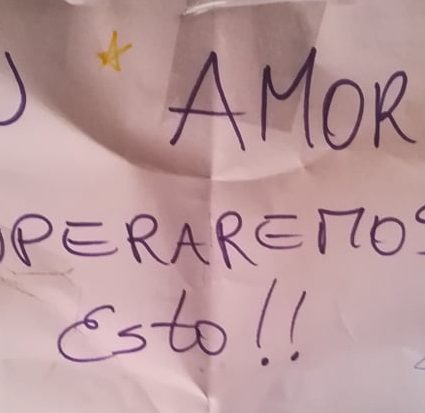 AMOR
OPERAREMOS
Esto!!